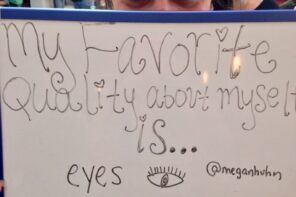 My Favorite
Quality about myself
is...
eyes @meganhuhn